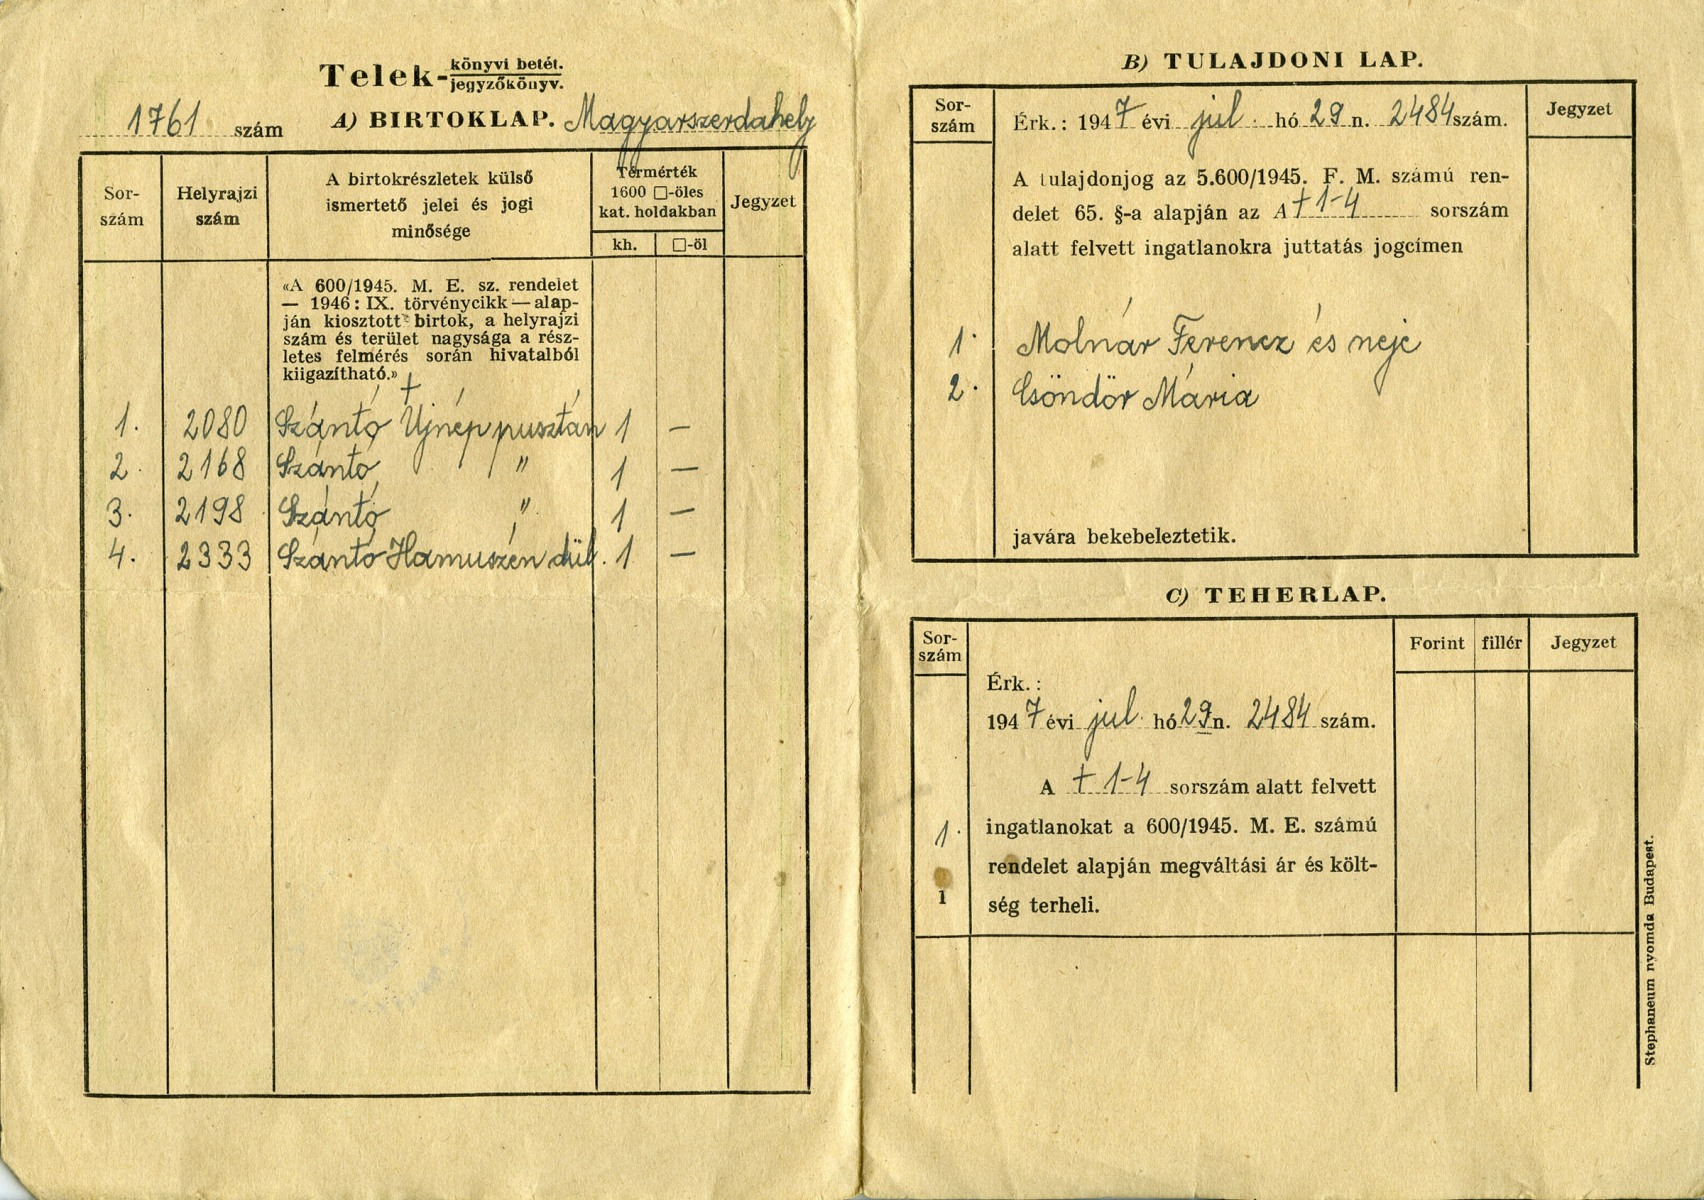 Telek-könyvi betét.
jegyzőkönyv.
1761 szám A) BIRTOKLAP. Magyarszerdahely
Sor-
szám
Helyrajzi
szám
A birtokrészletek külső
ismertető jelei és jogi
minősége
Térmérték
1600 □-öles
kat. holdakban
kh. □-öl
Jegyzet
«A 600/1945. M. E. sz. rendelet
— 1946 : IX. törvénycikk — alap-
ján kiosztott birtok, a helyrajzi
szám és terület nagysága a rész-
letes felmérés során hivatalból
kiigazítható.»
+
1. 2080 Szántó Újnép pusztán 1 —
2. 2168 Szántó " 1 —
3. 2198 Szántó " 1 —
4. 2333 Szántó Hamuszén dül. 1 —
B) TULAJDONI LAP.
Sor-
szám
Jegyzet
Érk.: 1947 évi jul. hó 29 n. 2484 szám.
A tulajdonjog az 5.600/1945. F. M. számú ren-
delet 65. §-a alapján az A + 1-4 sorszám
alatt felvett ingatlanokra juttatás jogcímen
1. Molnár Ferencz és neje
2. Csöndör Mária
javára bekebeleztetik.
C) TEHERLAP.
Sor-
szám
Forint fillér Jegyzet
Érk. :
1947 évi jul. hó 29 n. 2484 szám.
A + 1-4 sorszám alatt felvett
1. ingatlanokat a 600/1945. M. E. számú
rendelet alapján megváltási ár és költ-
1 ség terheli.
Stephaneum nyomda Budapest.